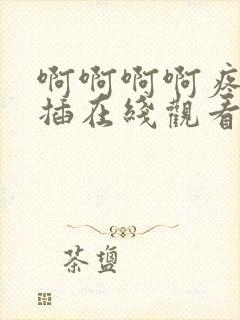 啊啊啊啊疼
插在綫觀看
茶鹽